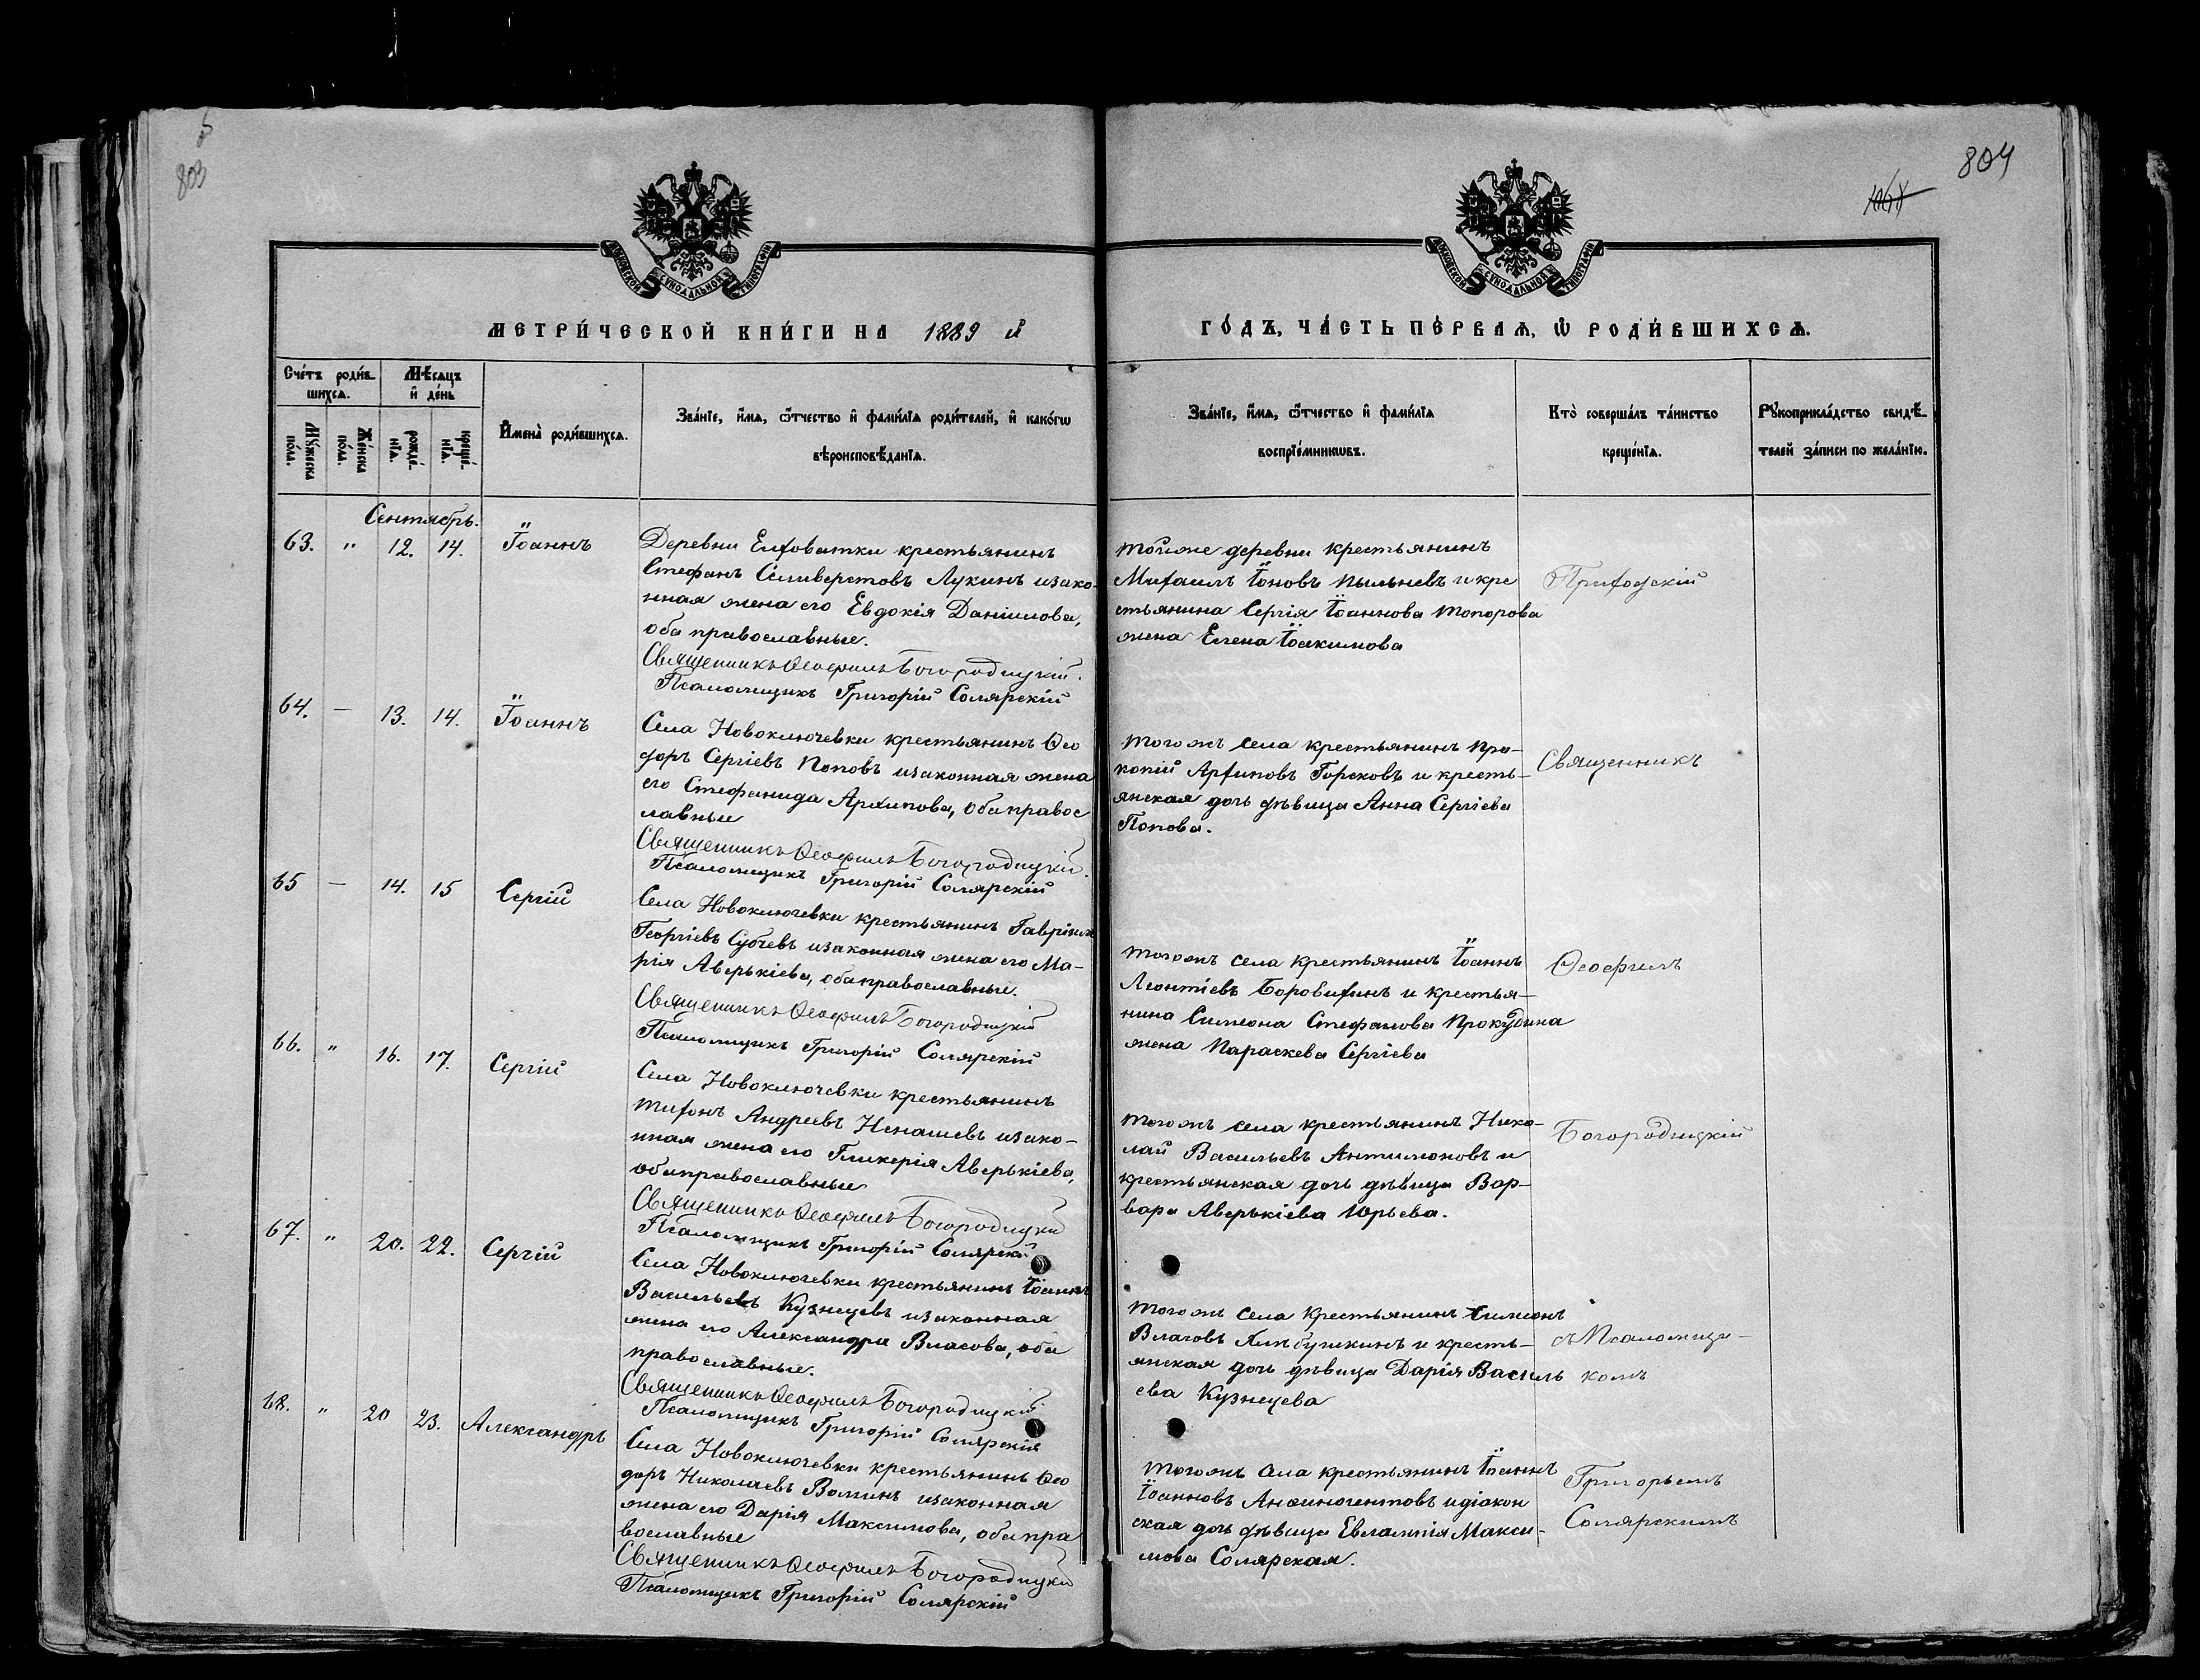 803
804
МОСКОВСКОЙ СѴНОДАЛЬНОЙ ТИПОГРАФІИ
МОСКОВСКОЙ СѴНОДАЛЬНОЙ ТИПОГРАФІИ
МЕТРИ́ЧЕСКОЙ КНИ́ГИ НА 1889 й
ГО́ДЪ, ЧА́СТЬ ПЕ́РВАѦ, Ѡ҆ РОДИ́ВШИХСѦ.
Сче́тъ роди́в-
шихсѧ.
Мѣ́сѧцъ
и҆ де́нь
Мꙋ́жеска
по́ла.
Же́нска
по́ла.
рожде́-
нїѧ.
креще́-
нїѧ.
И҆мена̀ роди́вшихсѧ.
Зва́нїе, и҆́мѧ, ѻ҆́тчество и҆ фами́лїѧ роди́телей, и҆ како́гѡ
вѣроисповѣ́данїѧ.
Зва́нїе, и҆́мѧ, ѻ҆́тчество и҆ фами́лїѧ
воспрїе́мникѡвъ.
Кто̀ соверша́лъ та́инство
креще́нїѧ.
Рꙋкоприкла́дство свидѣ́-
телей за́писи по жела́нїю.
Сентябрь.
63. " 12. 14. Іоаннъ
Деревни Елховатки крестьянинъ
Стефанъ Селиверстовъ Лукинъ изако-
нная жена его Евдокія Даніилова,
оба православные.
Священникъ Ѳеофилъ Богородицкій.
Псаломщикъ Григорій Солярскій
тойже деревни крестьянинъ
Михаилъ Іоновъ Пыльневъ и кре
стьянина Сергія Іоаннова Топорова
жена Елена Іоакимова
Приходскій
64. — 13. 14. Іоаннъ
Села Новоключевки крестьянинъ Ѳео
доръ Сергіевъ Поповъ изаконная жена
его Стефанида Архипова, оба правос
лавные
Священникъ Ѳеофилъ Богородицкій.
Псаломщикъ Григорій Солярскій
тогожъ села крестьянинъ Про-
копій Архиповъ Горсковъ и кресть-
янская дочь дѣвица Анна Сергіева
Попова.
Священникъ
65 — 14. 15 Сергій
Села Новоключевки крестьянинъ Гавріилъ
Георгіевъ Субчевъ изаконная жена его Ма-
рія Аверькіева, оба православные.
Священникъ Ѳеофилъ Богородицкій
Псаломщикъ Григорій Солярскій
тогожъ села крестьянинъ Іоаннъ
Леонтіевъ Боровихинъ и крестья-
нина Симеона Стефанова Прокудина
жена Параскева Сергіева
Ѳеофилъ
66. " 16. 17. Сергій
Села Новоключевки крестьянинъ
Тихонъ Андреевъ Ненашевъ изако-
нная жена его Гликерія Аверькіева,
оба православные
Священникъ Ѳеофилъ Богородицкій
Псаломщикъ Григорій Солярскій
тогожъ села крестьянинъ Нико-
лай Васильевъ Антимоновъ и
крестьянская дочь дѣвица Вар-
вара Аверькіева Юрьева.
Богородицкій
67. " 20. 22. Сергій
Села Новоключевки крестьянинъ Іоаннъ
Васильевъ Кузнецевъ изаконная
жена его Александра Власова, оба
православные.
Священникъ Ѳеофилъ Богородицкій
Псаломщикъ Григорій Солярскій
тогожъ села крестьянинъ Симеонъ
Власовъ и кресть-
янская дочь дѣвица Дарія Василь
ева Кузнецева
съ Псаломщи-
комъ
68. " 20 23. Александръ
Села Новоключевки крестьянинъ Ѳео
доръ Николаевъ Воминъ изаконная
жена его Дарія Максимова, оба пра
вославные
Священникъ Ѳеофилъ Богородицкій
Псаломщикъ Григорій Солярскій
тогожъ села крестьянинъ Іоаннъ
Іоанновъ Анѳиногентовъ идіакон
ская дочь дѣвица Евлампія Макси-
мова Солярская.
Григорьемъ
Солярскимъ